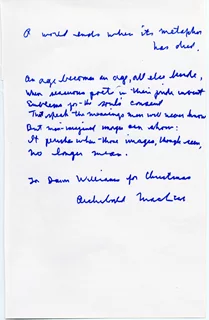 A world ends when its metaphor
has died.
An age becomes an age, all else beside,
When sensuous poets in their pride invent
Emblems for the soul's consent
That speak the meanings men will never know
But man-imagined images can show:
It perishes when those images, though seen,
No longer mean.
For Dawn Williams for Christmas
Archibald MacLeish